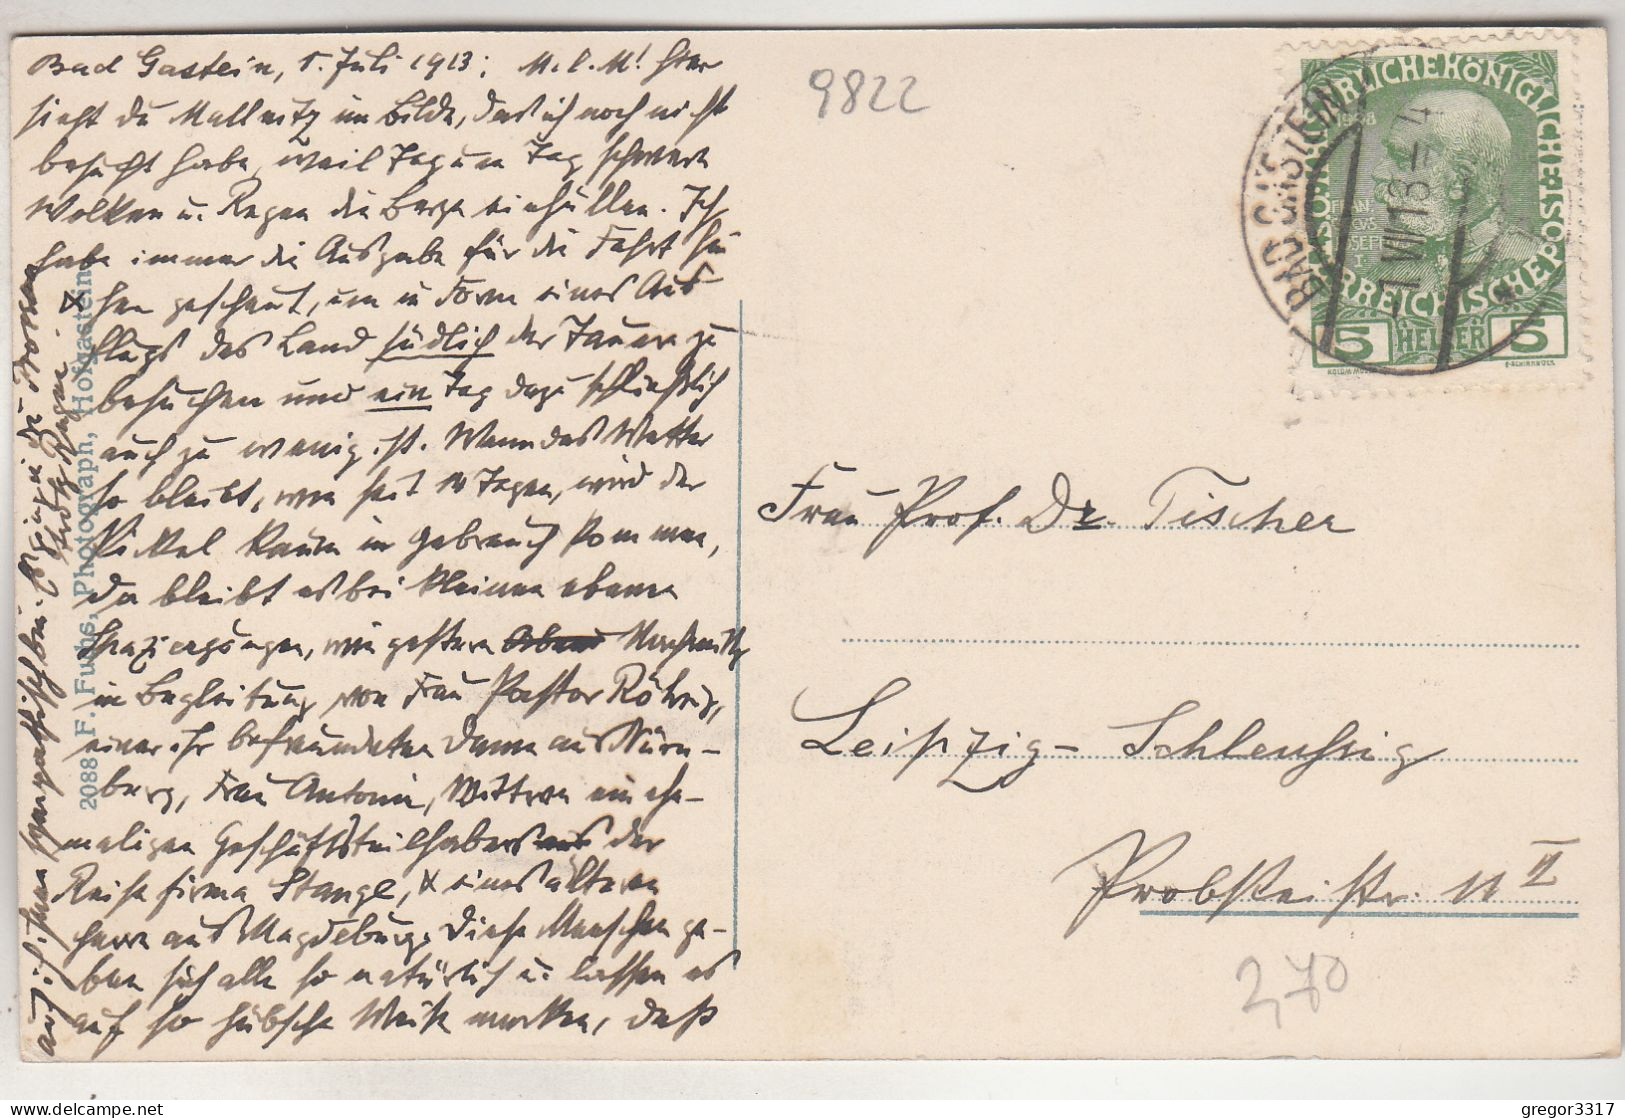 Bad Gastein, 1. Juli 1913; M. l. M! Hier
siehst du Mallnitz im Bilde, das ich noch nicht
besucht habe, weil Tag um Tag schwere
Wolken u. Regen die Berge einhüllen. Ich
habe immer die Ausgabe für die Fahrt hin
gescheut, um in Form eines Aus
flugs das Land südlich der Tauern zu
besuchen und ein Tag dazu schließlich
auch zu wenig ist. Wenn das Wetter
so bleibt, wie seit 14 Tagen, wird der
Pickel kaum in Gebrauch kommen,
da bleibt es bei kleinen ebenen
Spaziergängen, wie gestern Nachmittg
in Begleitung von Frau Pastor Röhrig,
einer ihr befreundeten Dame aus Nürn-
berg, Frau Antonie, Wittwe eines ehe-
maligen Geschäftsteilhabers der
Reisefirma Stange, & eines älteren
Herrn aus Magdeburg. Diese Menschen ge-
ben sich alle so natürlich u. lassen es
auf so hübsche Weise merken, daß
auch ich ihnen sympathisch bin.
trotz Regen.
2088 F. Fuchs, Photograph, Hofgastein
9822
BAD GASTEIN
-1.VII.13-4
KAISERLICHE KÖNIGLICHE ÖSTERREICHISCHE POST
1908
FRANCISCUS JOSEPH I
5 HELLER 5
KOLOM.MOSER
F.SCHIRNBÖCK
Frau Prof. Dr. Tischer
Leipzig-Schleussig
Probsteistr. 11 II
2,70
gregor3317